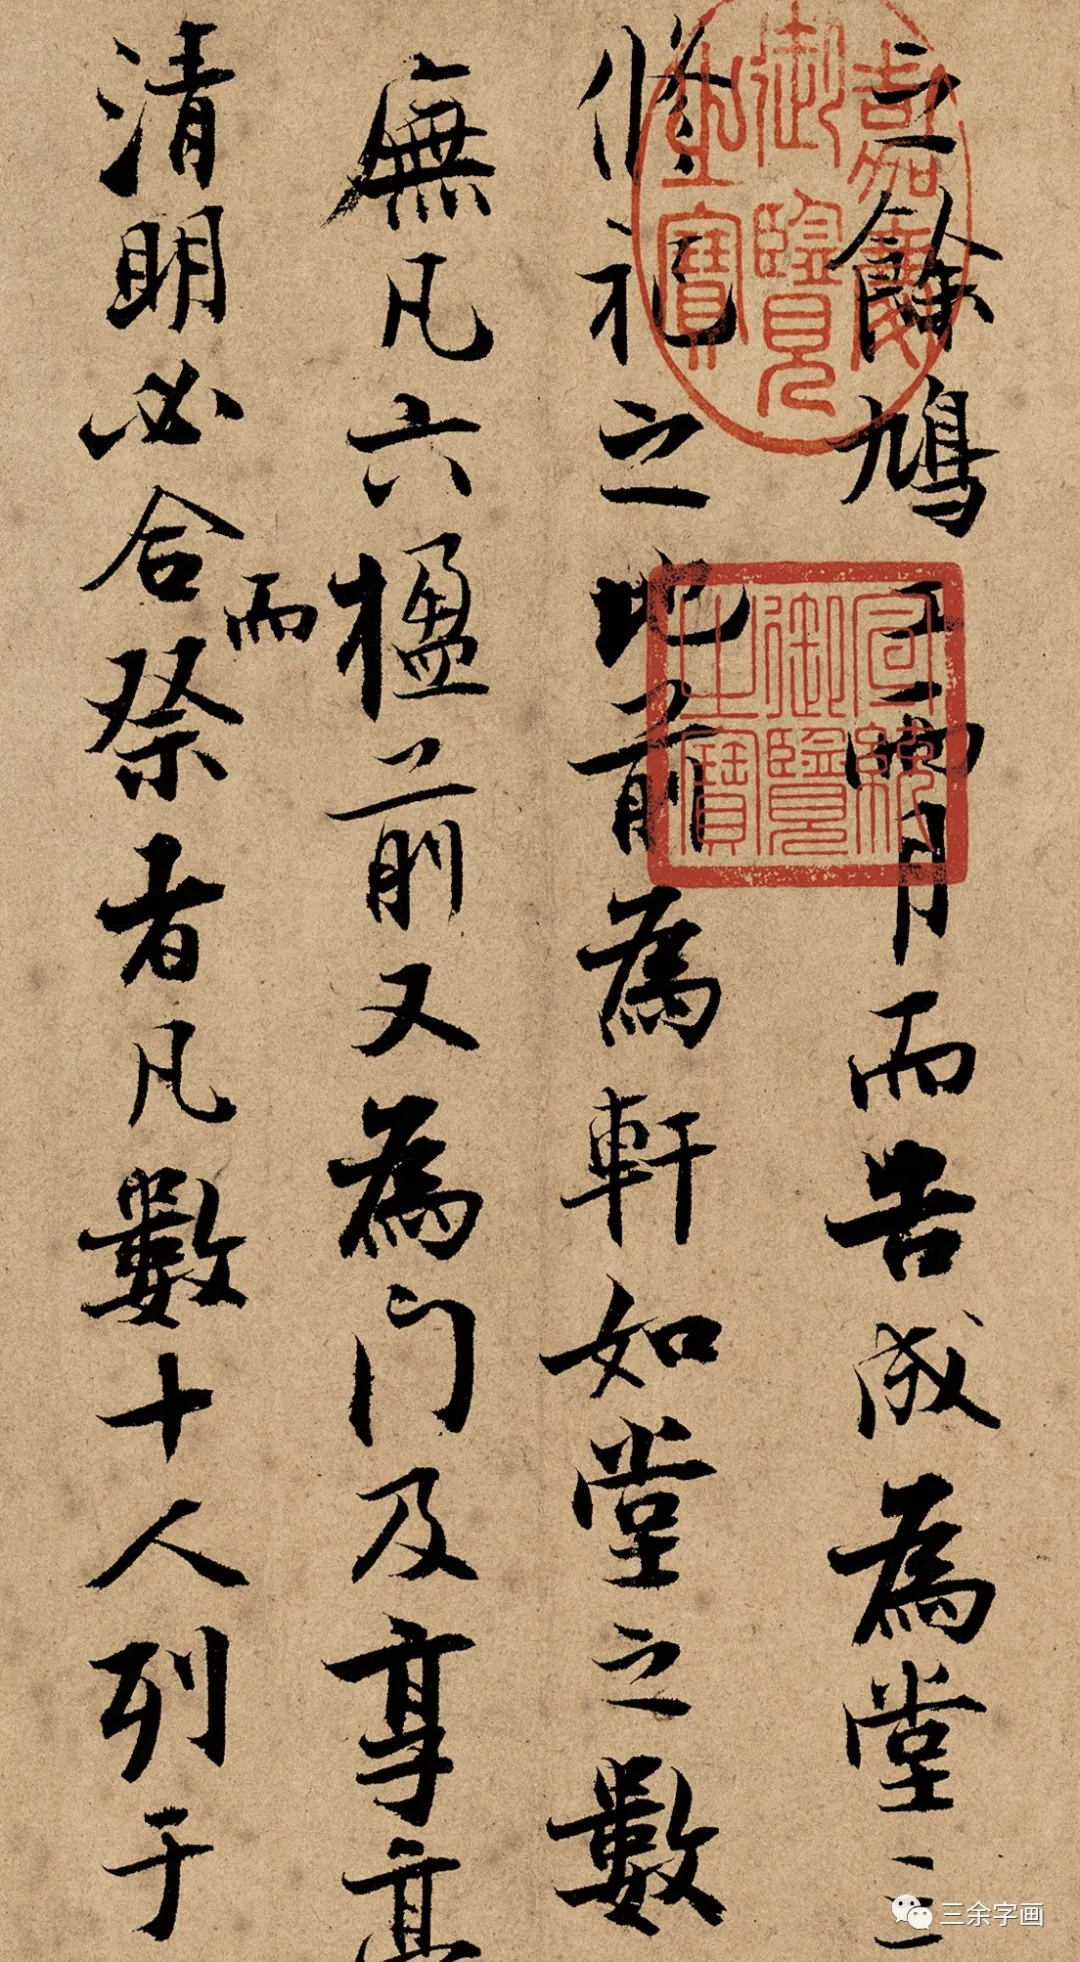 之餘鳩工兩月而告成為堂三
脩祀之地前為軒如堂之數
廡凡六楹前又為門及享亭
清明必合而祭者凡數十人列于
嘉慶御覽之寶
宣統御覽之寶
三余字画